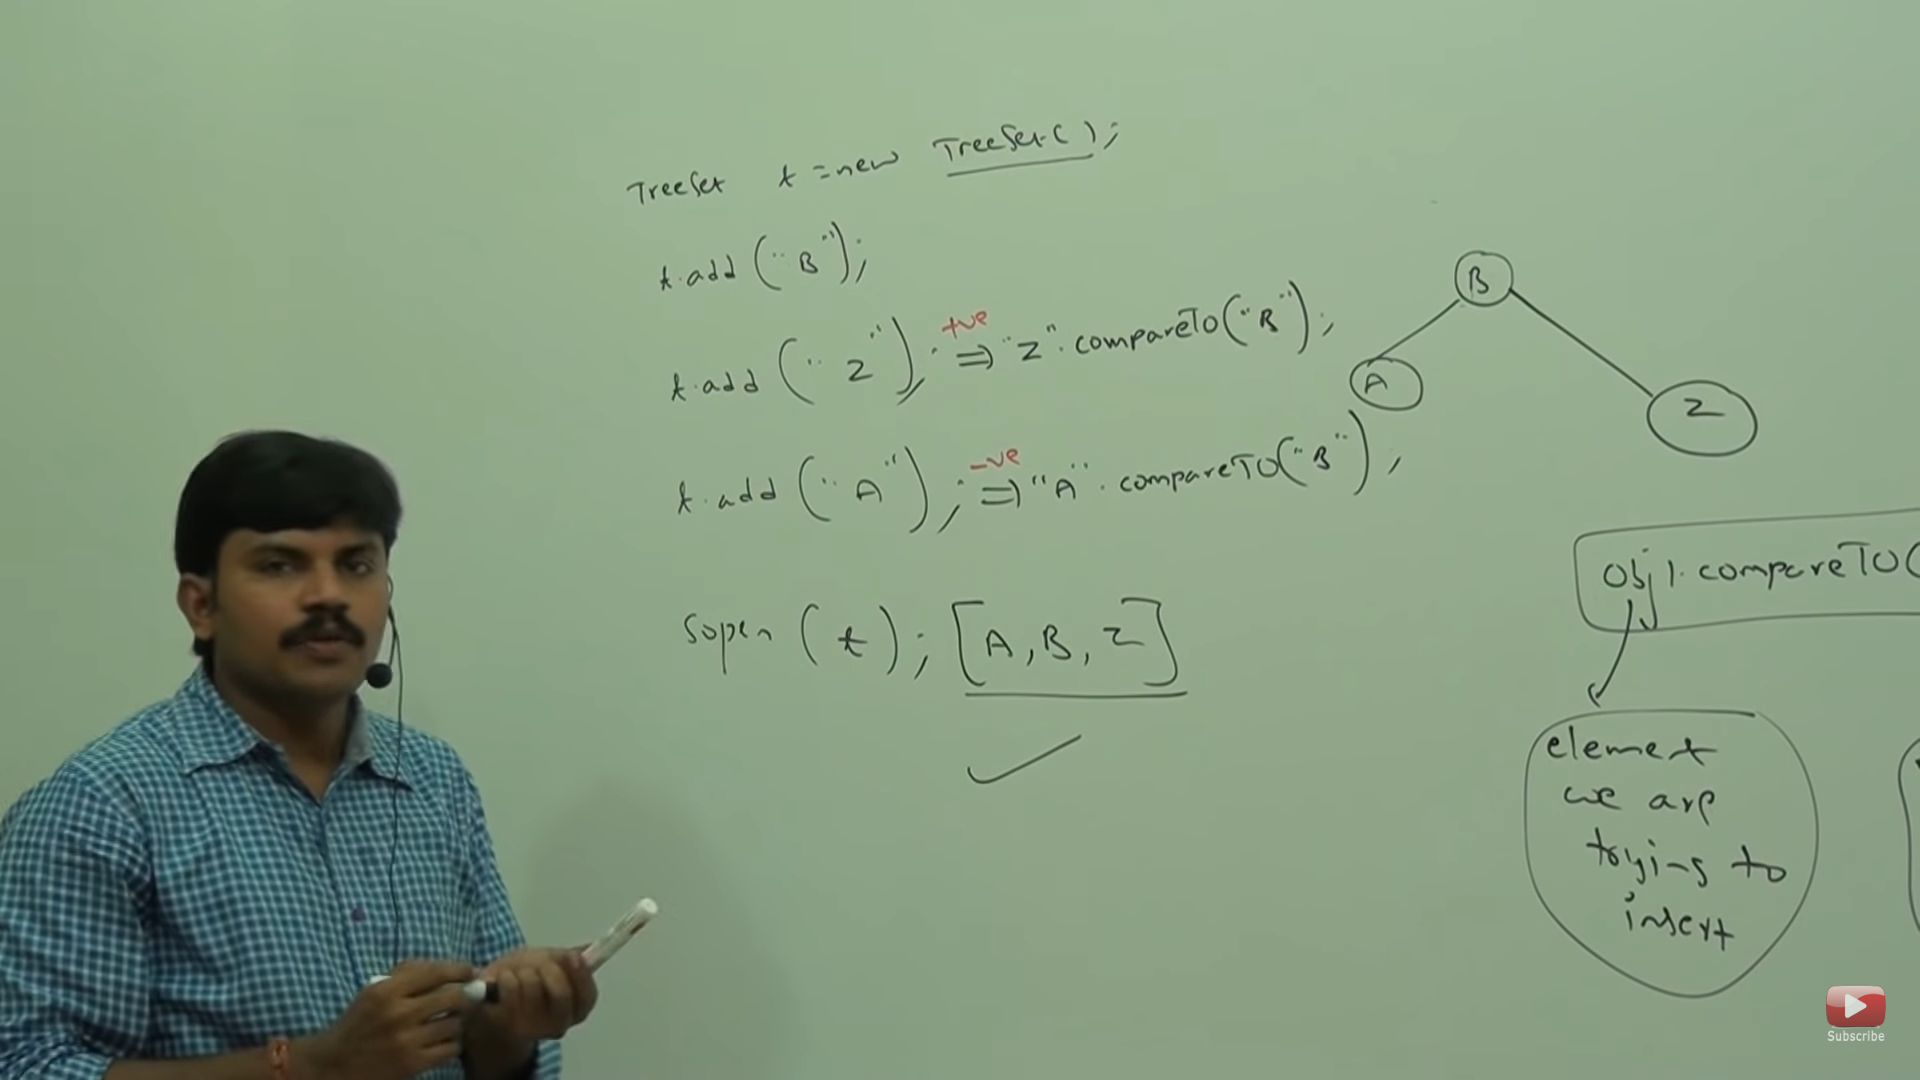 TreeSet t = new TreeSet();
t.add("B");
t.add("Z"); +ve => "Z".compareTo("B");
t.add("A"); -ve => "A".compareTo("B");
Sopln(t); [A, B, Z]
B
A
Z
obj1.compareTO(
element
we are
trying to
insert
Subscribe